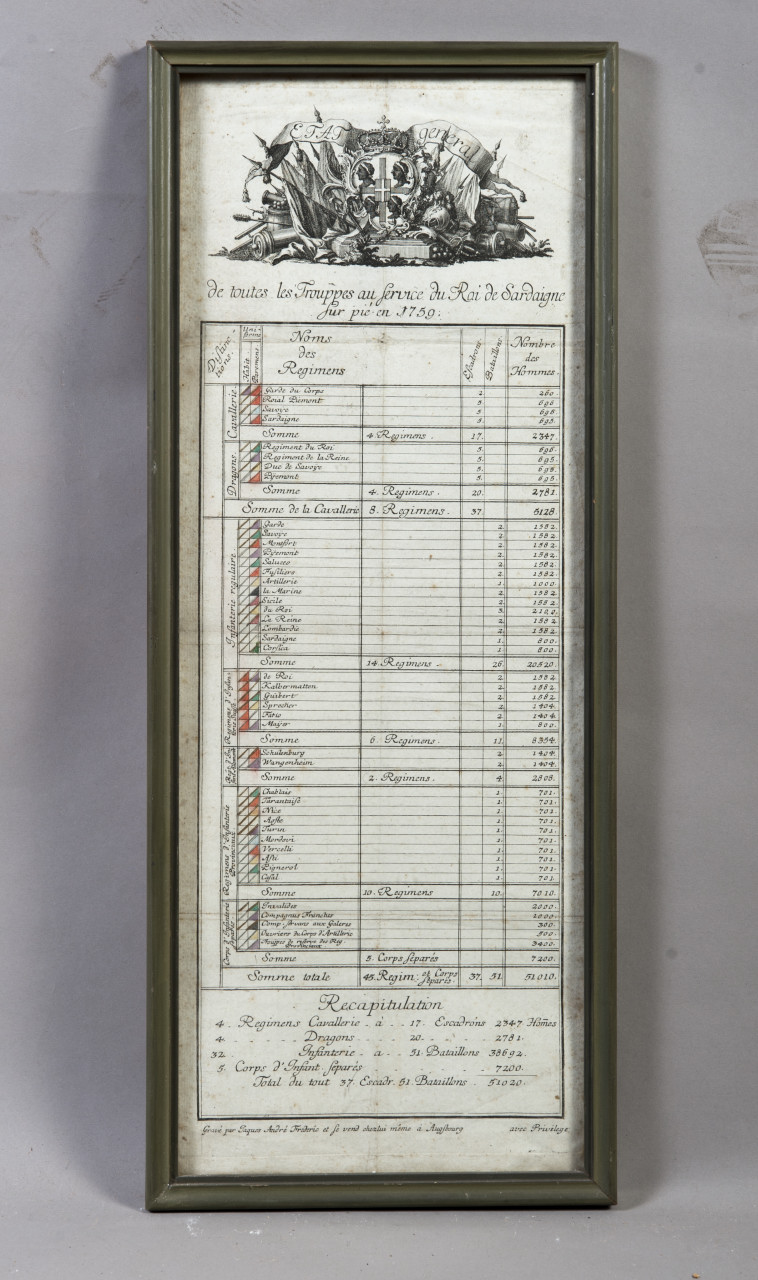 ETAT general
de toutes les Trouppes au service du Roi de Sardaigne
sur pié en 1759.
Distinc-
tions.
Uni-
forme
Habit
Paremens
Noms
des
Regimens
Escadrons
Bataillons
Nombre
des
Hommes.
Cavallerie
Garde du Corps 2. 260.
Roial Piémont 5. 696.
Savoye 5. 696.
Sardaigne 5. 695.
Somme 4. Regimens. 17. 2347.
Dragons.
Regiment du Roi 5. 696.
Regiment de la Reine 5. 695.
Duc de Savoye 5. 695.
Piemont 5. 695.
Somme 4. Regimens. 20. 2781.
Somme de la Cavallerie 8. Regimens. 37. 5128.
Infanterie regulaire
Garde 2. 1582.
Savoye 2. 1582.
Montfort 2. 1582.
Piemont 2. 1582.
Saluces 2. 1582.
Fusiliers 2. 1582.
Artillerie 1. 1000.
la Marine 2. 1582.
Sicile 2. 1582.
du Roi 3. 2120.
La Reine 2. 1582.
Lombardie 2. 1582.
Sardaigne 1. 800.
Corsica 1. 800.
Somme 14. Regimens 26. 20520.
de Roi 2. 1582
Kalbermatten 2. 1582
Guibert 2. 1582
Sprecher 2. 1404.
Fatio 2. 1404.
Mayer 1. 800.
Somme 6. Regimens. 11. 8354.
Schulenburg 2. 1404.
Wangenheim 2. 1404.
Somme 2. Regimens. 4. 2808.
Regimens d'Infanterie
Provinciaux
Chablais 1. 701.
Tarantaise 1. 701.
Nice 1. 701.
Aoste 1. 701.
Turin 1. 701.
Mondovi 1. 701.
Vercelli 1. 701.
Asti 1. 701.
Pignerol 1. 701.
Casal 1. 701.
Somme 10. Regimens 10. 7010.
Corps d'Infanterie
séparés
Invalides 2000.
Compagnies Franches 1000.
Comp. servans aux Galeres 300.
Ouvriers du Corps d'Artillerie 500.
Troupes de reserve des Reg.
Provinciaux 3400.
Somme 5. Corps séparés 7200.
Somme totale 45. Regim: et Corps séparés. 37. 51. 51010.
Recapitulation
4. Regimens Cavallerie à 17. Escadrons 2347 Homes
4. Dragons 20. 2781.
32. Infanterie a 51. Bataillons 38692.
5. Corps d'Infant séparés 7200.
Total du tout 37. Escadr. 51. Bataillons 51020.
Gravé par Jaques André Fréderic et se vend chez lui même à Augsbourg avec Privilege